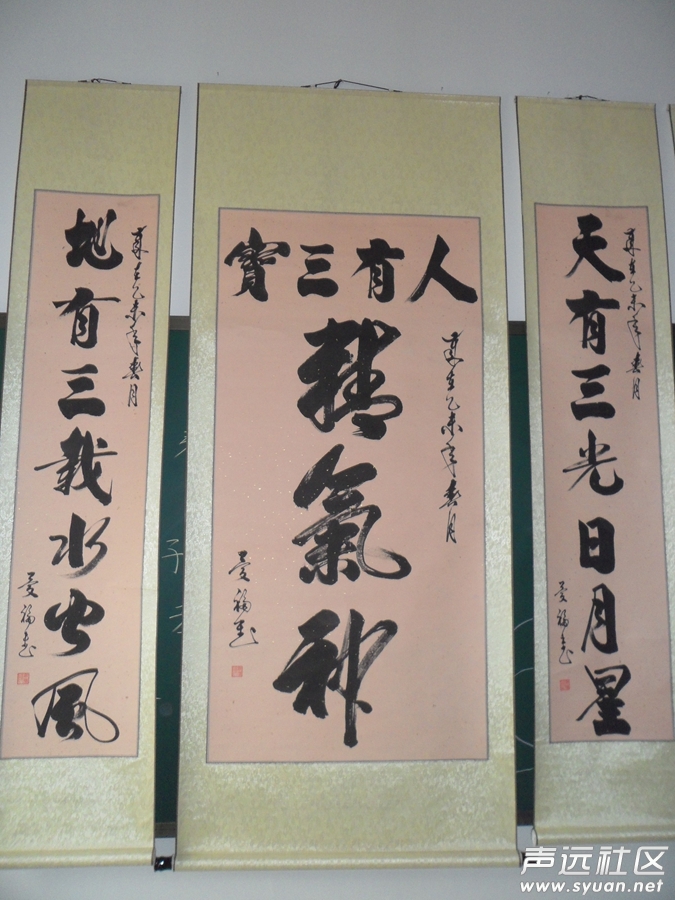 天有三光日月星
歲在乙未年春月
人有三寶
精氣神
歲在乙未年春月
地有三栽水火風
歲在乙未年春月
声远社区
www.syuan.net